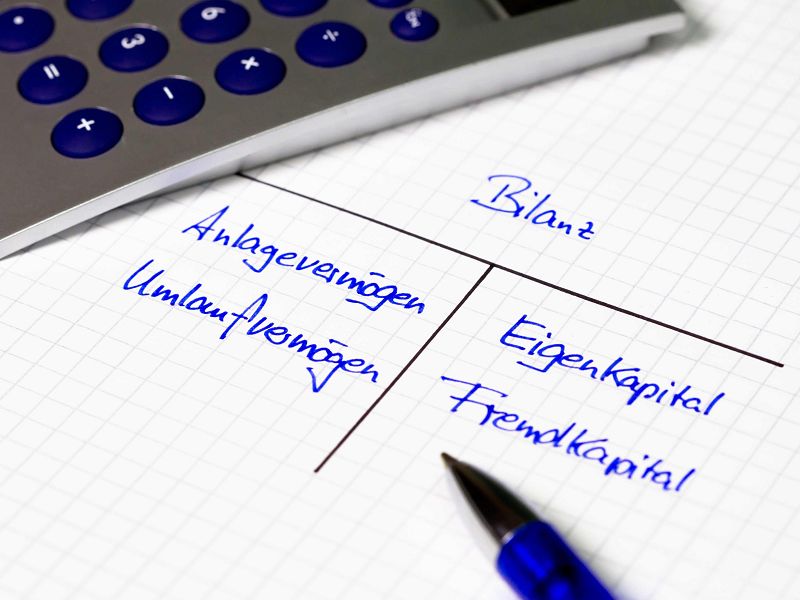 Bilanz
Anlagevermögen
Umlaufvermögen
Eigenkapital
Fremdkapital
6
3
÷
×
=
-
+